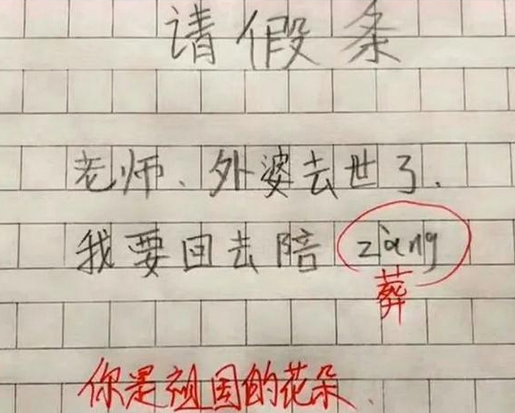 请假条
老师、外婆去世了.
我要回去陪 zàng
葬
你是祖国的花朵.